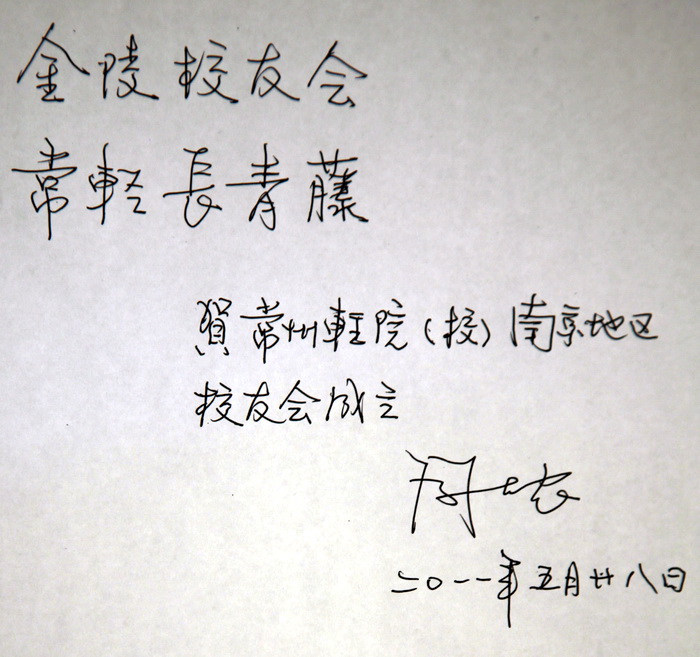 金陵校友会
常軽長青藤
賀常州軽院(校)南京地区
校友会成立
周
二〇一一年五月廿八日